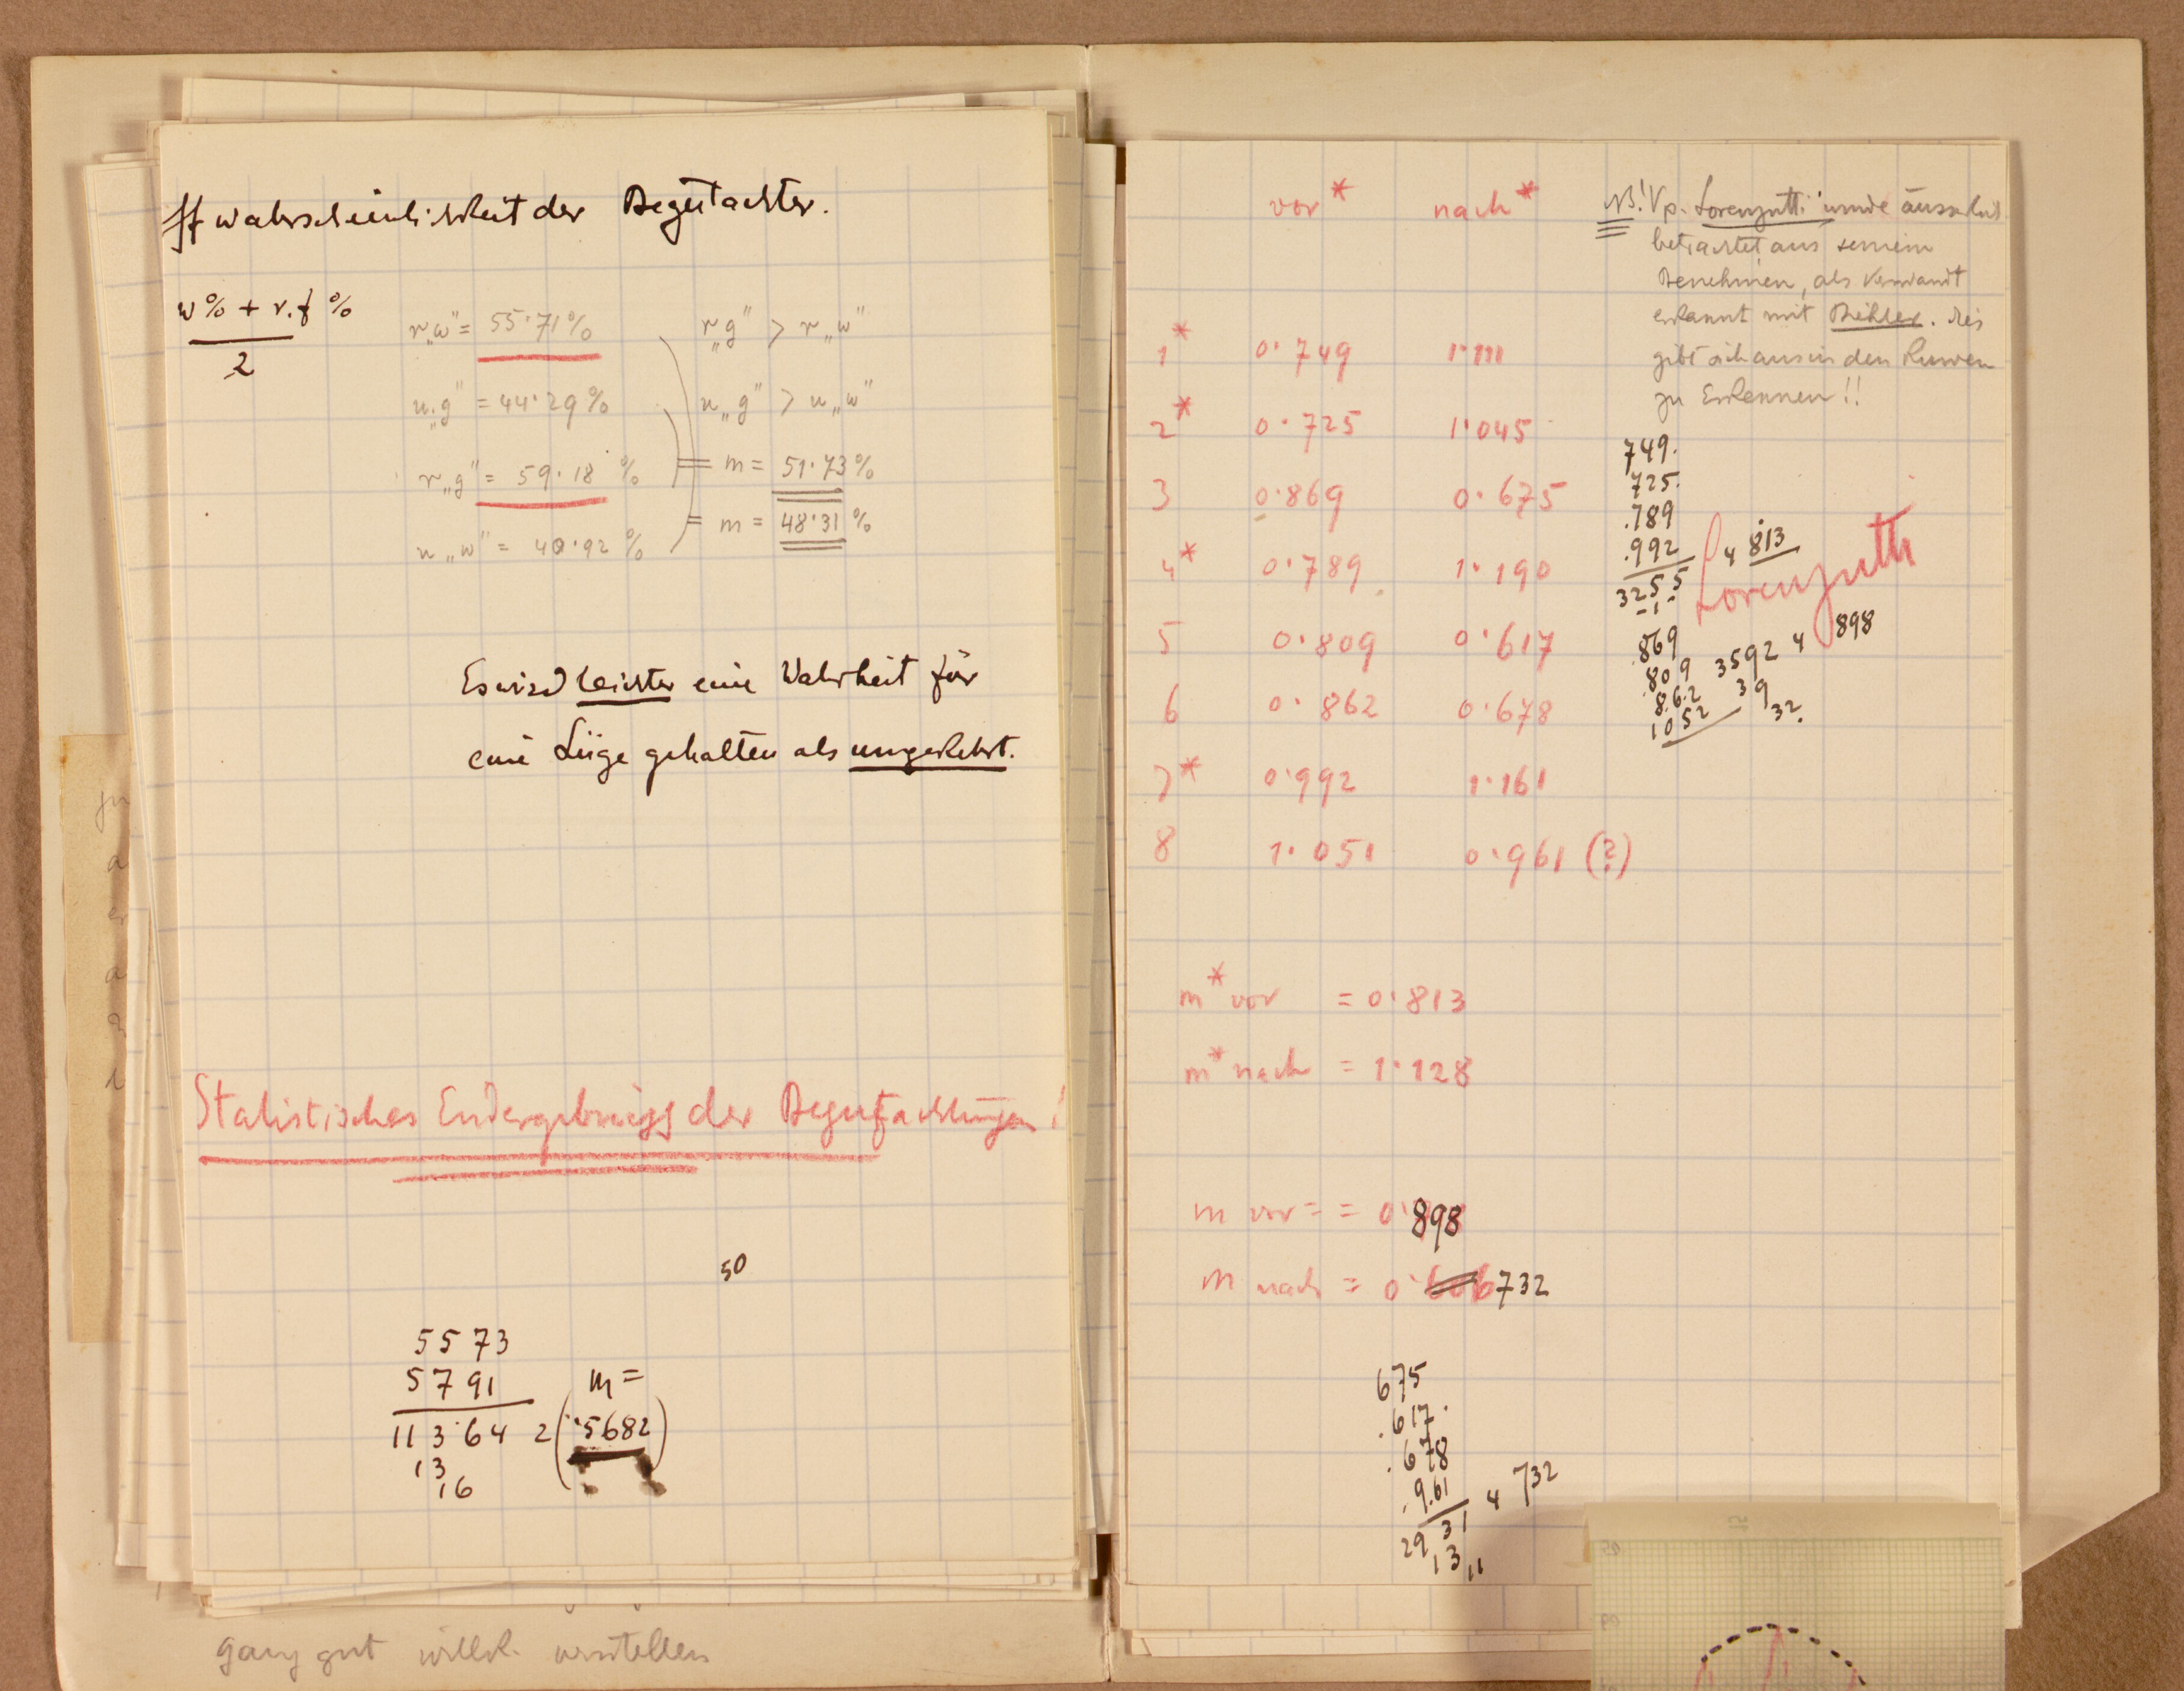 wahrscheinlichkeit der Begutachter.
w% + r.f %
2
r„w" = 55·71%
u„g" = 44·29%
r„g" = 59·18 %
u„w" = 40·92 %
r„g" > r„w"
u„g" > u„w"
= m = 51·73%
= m = 48·31 %
Es wird leichter eine Wahrheit für
eine Lüge gehalten als umgekehrt.
Statistisches Endergebniss der Begutachtungen!
50
5573
5791
113·64 2 (·5682)
m =
13
16
ganz gut willk. verstellen
vor* nach*
1* 0·749 1·111
2* 0·725 1·045
3 0·869 0·675
4* 0·789 1·190
5 0·809 0·617
6 0·862 0·678
7* 0·992 1·161
8 1·051 0·961 (?)
m* vor = 0·813
m* nach = 1·128
m vor = = 0·898
m nach = 0·606732
675
.617.
.678
.961
2931 4 732
13
11
NB! Vp. Lorenzutti wurde
betrachtet aus seinem
Benehmen, als verwandt
erkannt mit Bihler. Dies
gibt sich aus in den Kurven
zu Erkennen!!
749.
725.
.789
.992
3255 4 813
-1-
Lorenzutti
.869
.809
862
1052
3592 4 898
39
32.